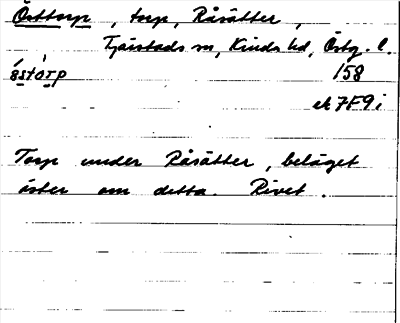 Östtorp, torp, Råsätter,
Tjärstads sn, Kinds hd, Östg. l.
östòrp 158
ek 7F9i
Torp under Råsätter, beläget
öster om detta. Rivet.